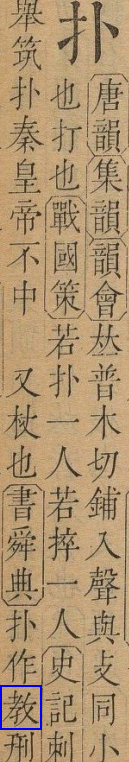 扑
唐韻集韻韻會𠀤普木切鋪入聲與攴同小
也打也戰國策若扑一人若捽一人史記刺
舉筑扑秦皇帝不中 又杖也書舜典扑作教刑